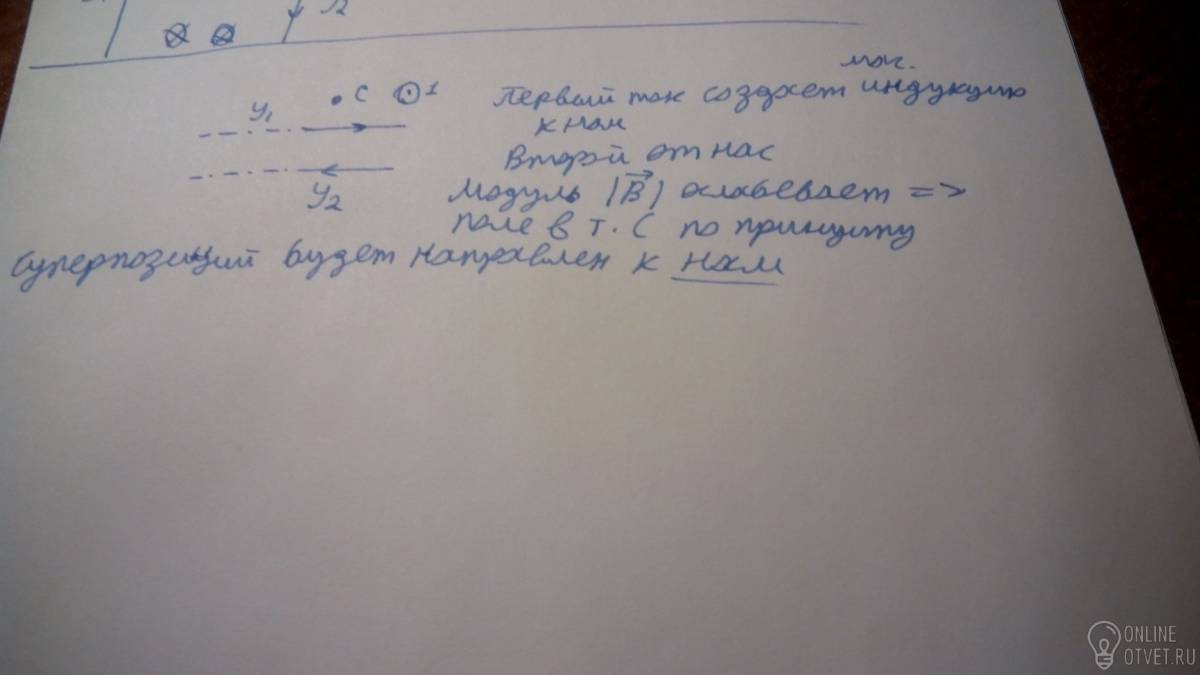 У2
C 1
У1
маг.
Первый ток создает индукцию
к нам
Второй от нас
У2
Модуль |B| ослабевает =>
поле в т. C по принципу
суперпозиций будет направлен к нам
ONLINE
OTVET.RU